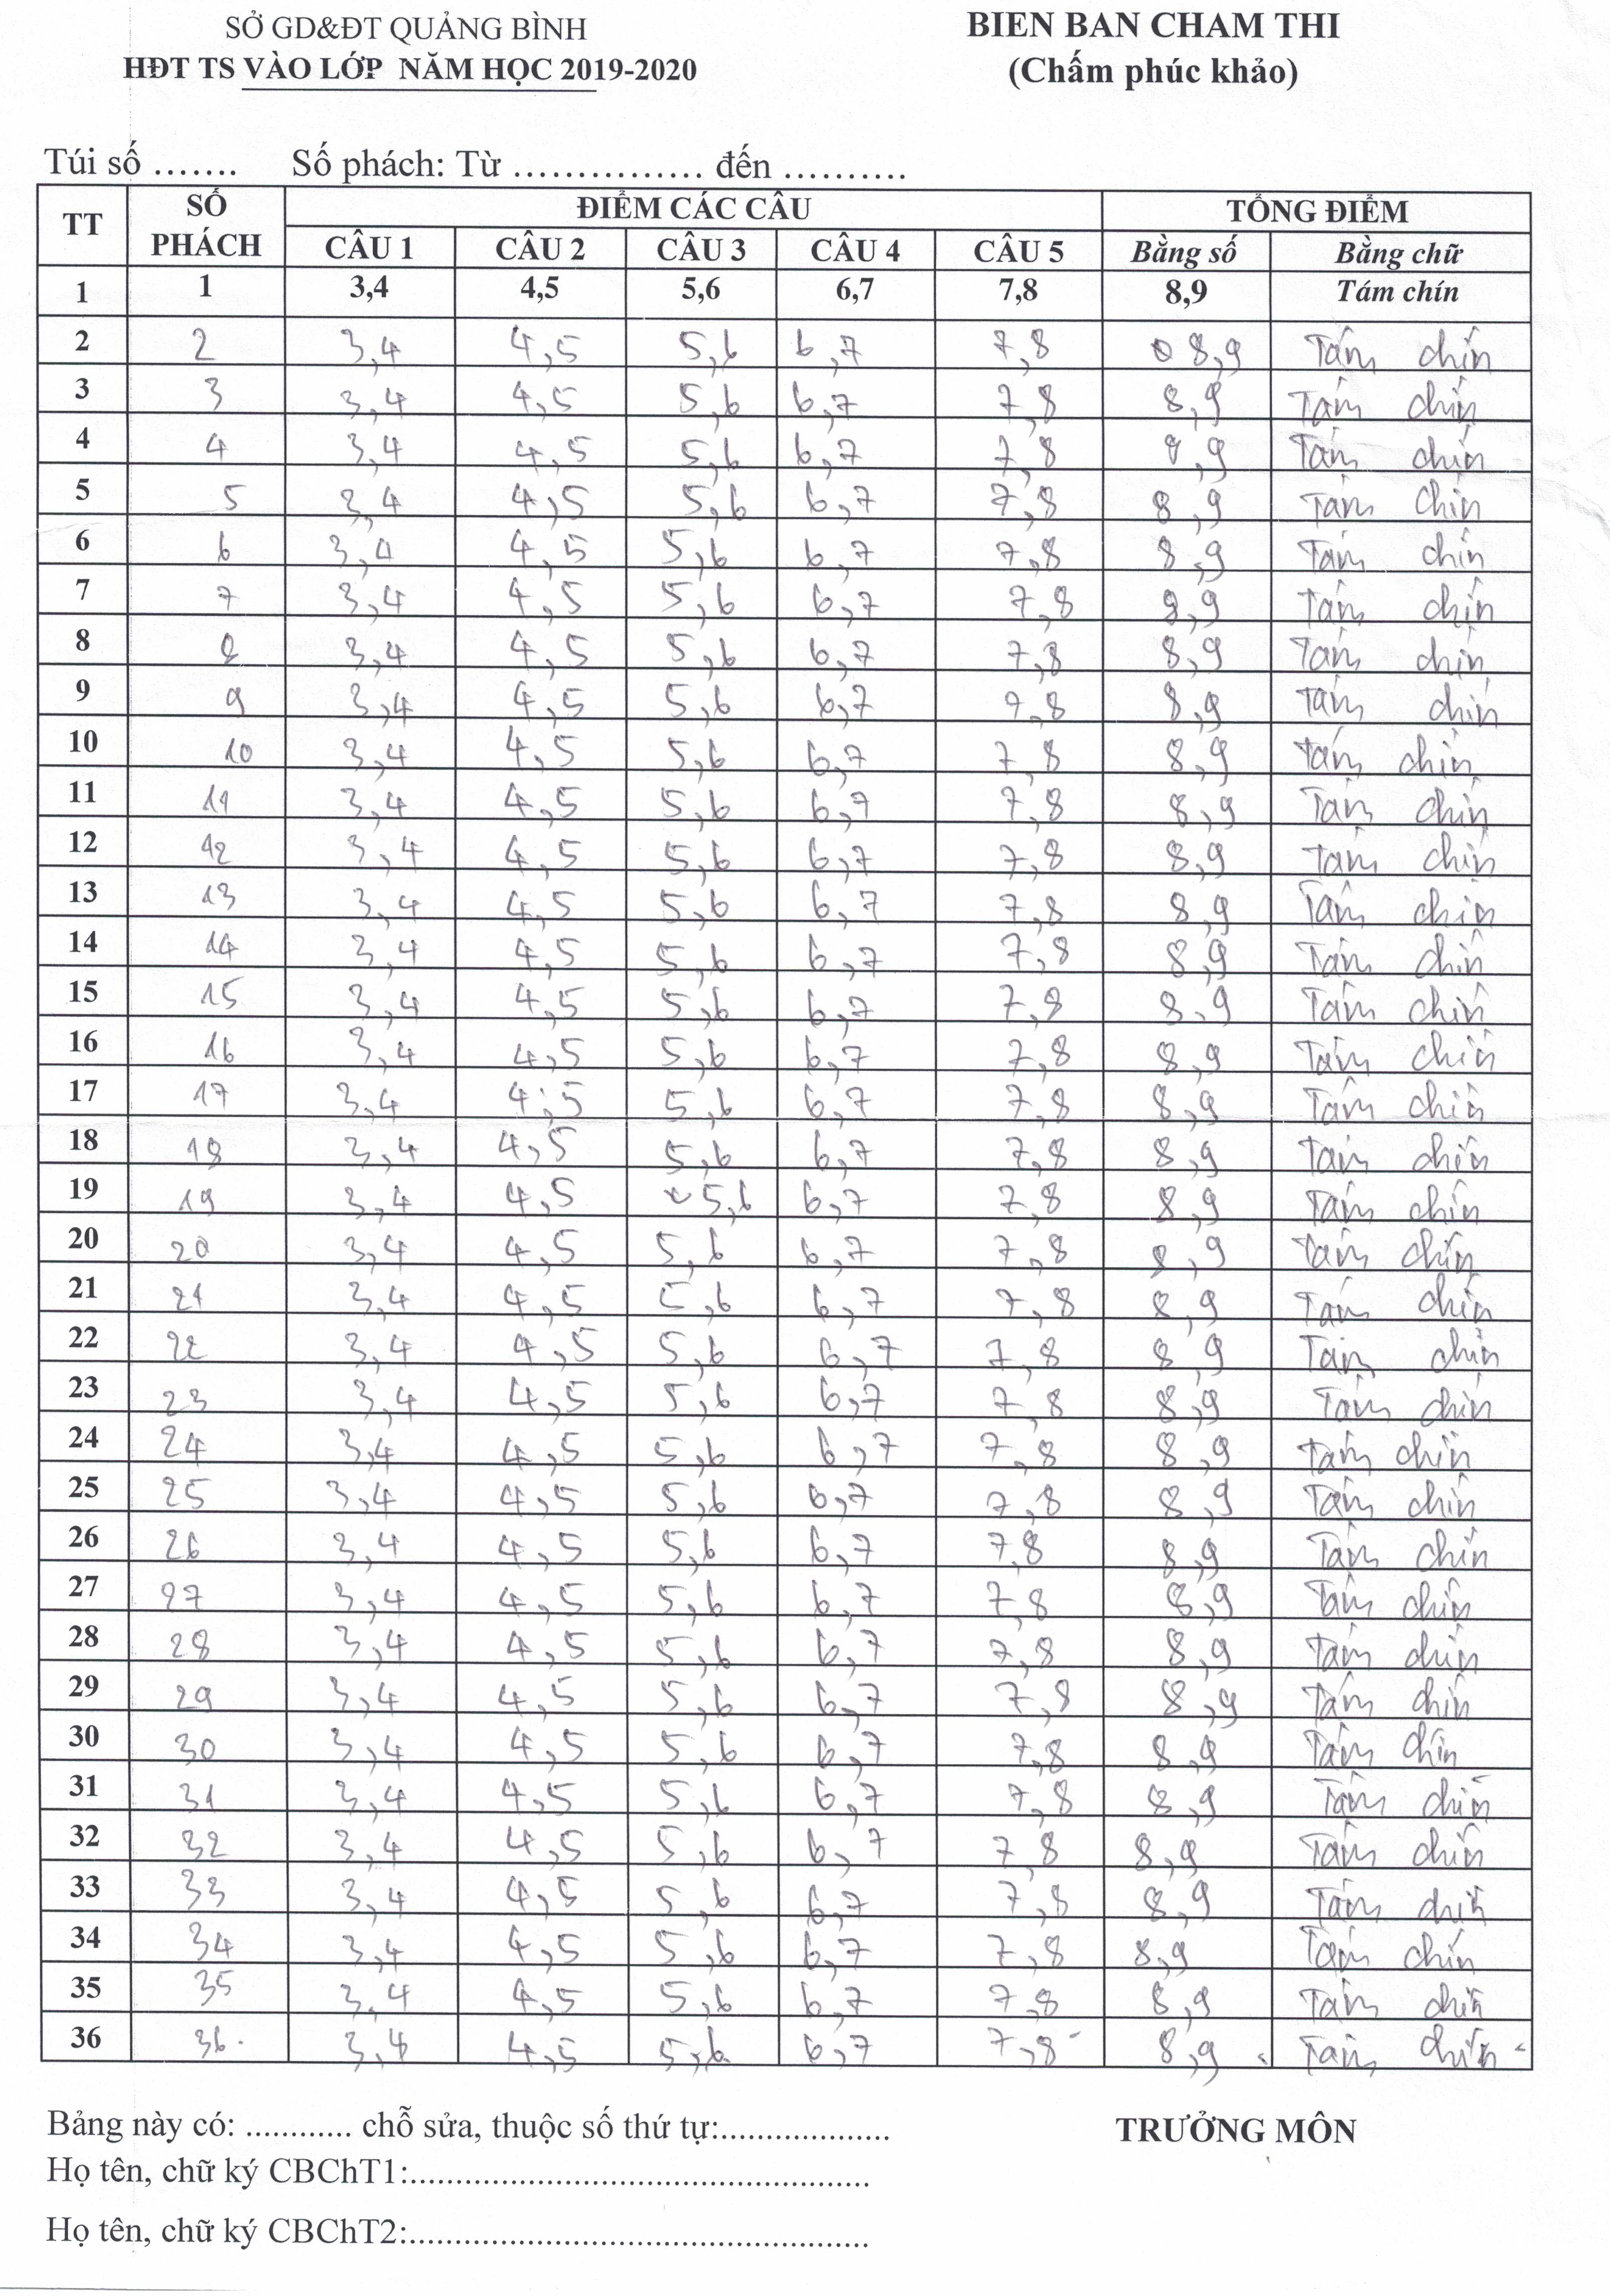 SỞ GD&ĐT QUẢNG BÌNH
HĐT TS VÀO LỚP NĂM HỌC 2019-2020
BIEN BAN CHAM THI
(Chấm phúc khảo)
Túi số ....... Số phách: Từ ................ đến ..........
TT SỐ PHÁCH ĐIỂM CÁC CÂU TỔNG ĐIỂM
CÂU 1 CÂU 2 CÂU 3 CÂU 4 CÂU 5 Bằng số Bằng chữ
1 1 3,4 4,5 5,6 6,7 7,8 8,9 Tám chín
2 2 3,4 4,5 5,6 6,7 7,8 8,9 Tám chín
3 3 3,4 4,5 5,6 6,7 7,8 8,9 Tám chín
4 4 3,4 4,5 5,6 6,7 7,8 8,9 Tám chín
5 5 3,4 4,5 5,6 6,7 7,8 8,9 Tám chín
6 6 3,4 4,5 5,6 6,7 7,8 8,9 Tám chín
7 7 3,4 4,5 5,6 6,7 7,8 8,9 Tám chín
8 8 3,4 4,5 5,6 6,7 7,8 8,9 Tám chín
9 9 3,4 4,5 5,6 6,7 7,8 8,9 Tám chín
10 10 3,4 4,5 5,6 6,7 7,8 8,9 Tám chín
11 11 3,4 4,5 5,6 6,7 7,8 8,9 Tám chín
12 12 3,4 4,5 5,6 6,7 7,8 8,9 Tám chín
13 13 3,4 4,5 5,6 6,7 7,8 8,9 Tám chín
14 14 3,4 4,5 5,6 6,7 7,8 8,9 Tám chín
15 15 3,4 4,5 5,6 6,7 7,8 8,9 Tám chín
16 16 3,4 4,5 5,6 6,7 7,8 8,9 Tám chín
17 17 3,4 4,5 5,6 6,7 7,8 8,9 Tám chín
18 18 3,4 4,5 5,6 6,7 7,8 8,9 Tám chín
19 19 3,4 4,5 5,6 6,7 7,8 8,9 Tám chín
20 20 3,4 4,5 5,6 6,7 7,8 8,9 Tám chín
21 21 3,4 4,5 5,6 6,7 7,8 8,9 Tám chín
22 22 3,4 4,5 5,6 6,7 7,8 8,9 Tám chín
23 23 3,4 4,5 5,6 6,7 7,8 8,9 Tám chín
24 24 3,4 4,5 5,6 6,7 7,8 8,9 Tám chín
25 25 3,4 4,5 5,6 6,7 7,8 8,9 Tám chín
26 26 3,4 4,5 5,6 6,7 7,8 8,9 Tám chín
27 27 3,4 4,5 5,6 6,7 7,8 8,9 Tám chín
28 28 3,4 4,5 5,6 6,7 7,8 8,9 Tám chín
29 29 3,4 4,5 5,6 6,7 7,8 8,9 Tám chín
30 30 3,4 4,5 5,6 6,7 7,8 8,9 Tám chín
31 31 3,4 4,5 5,6 6,7 7,8 8,9 Tám chín
32 32 3,4 4,5 5,6 6,7 7,8 8,9 Tám chín
33 33 3,4 4,5 5,6 6,7 7,8 8,9 Tám chín
34 34 3,4 4,5 5,6 6,7 7,8 8,9 Tám chín
35 35 3,4 4,5 5,6 6,7 7,8 8,9 Tám chín
36 36. 3,4 4,5 5,6 6,7 7,8 8,9 Tám chín
Bảng này có: ............ chỗ sửa, thuộc số thứ tự:...................
TRƯỞNG MÔN
Họ tên, chữ ký CBChT1:....................................................
Họ tên, chữ ký CBChT2:....................................................